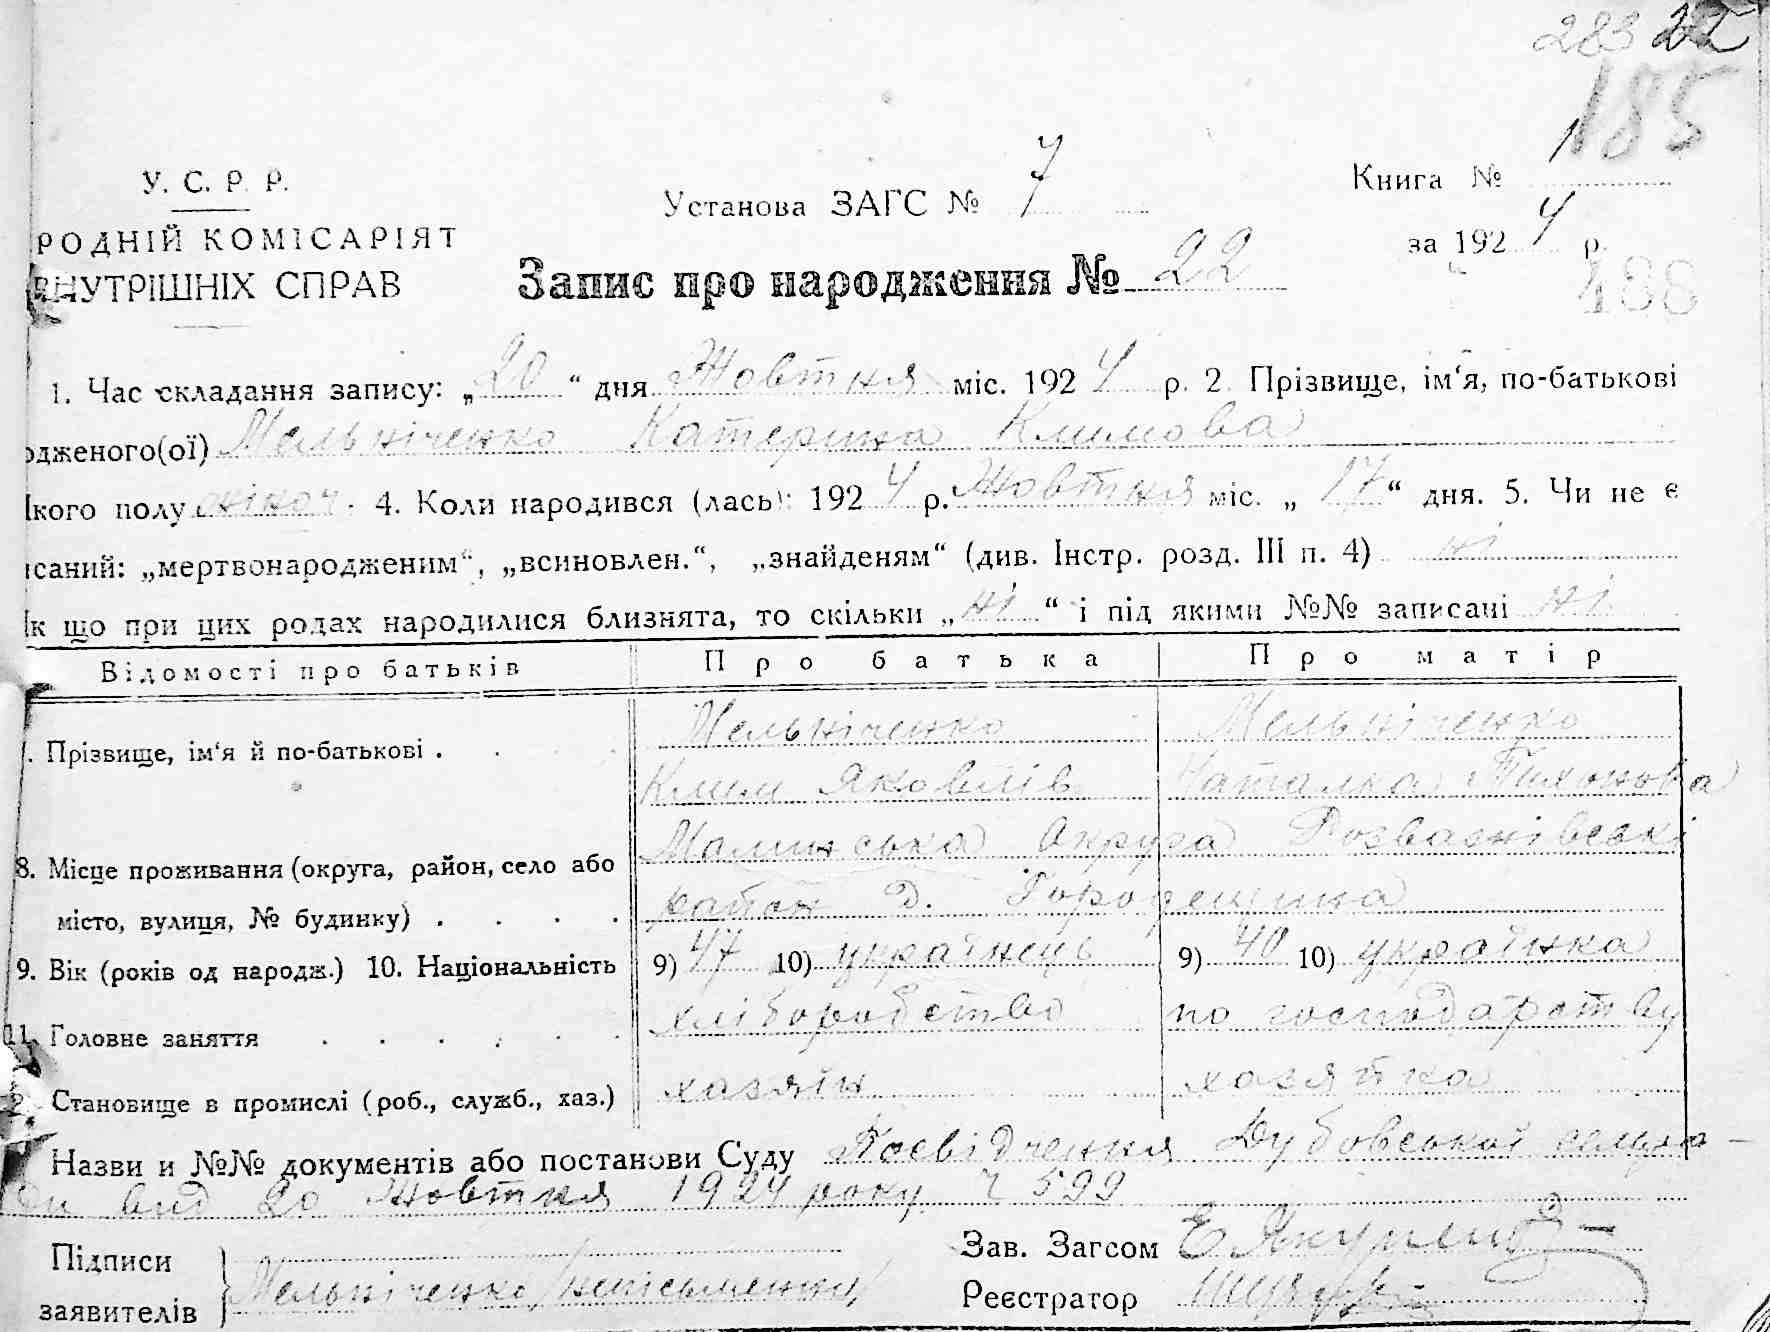 283 22
185
У. С. Р. Р.
РОДНІЙ КОМІСАРІЯТ
ВНУТРІШНІХ СПРАВ
Установа ЗАГС № 7
Книга № 1
за 1924 р.
188
Запис про народження № 22
1. Час складання запису: „20“ дня Жовтня міс. 1924 р. 2. Прізвище, ім‘я, по-батькові
одженого(ої) Мельніченко Катерина Климова
кого полу жіноч. 4. Коли народився (лась): 1924 р. Жовтня міс. „17“ дня. 5. Чи не є
исаний: „мертвонародженим“, „всиновлен.“, „знайденям“ (див. Інстр. розд. III п. 4) ні
к що при цих родах народилися близнята, то скільки „ні“ і під якими №№ записані ні
Відомості про батьків Про батька Про матір
7. Прізвище, ім‘я й по-батькові . Мельніченко Мельніченко
Клим Яковлів Наталка Тихонова
8. Місце проживання (округа, район, село або Малинська округа Розважівські
місто, вулиця, № будинку) . . . . район Д. Городещина
9. Вік (років од народж.) 10. Національність 9) 47 10) українець 9) 40 10) українка
11. Головне заняття . . . . . . хліборобство по господарству
2. Становище в промислі (роб., служб., хаз.) хазяїн хазяйка
Назви и №№ документів або постанови Суду Посвідчення Дубовської сельра-
ди від 20 Жовтня 1924 року Ч 599
Підписи
заявителів Мельніченко /неписьменний/
Зав. Загсом
Реєстратор